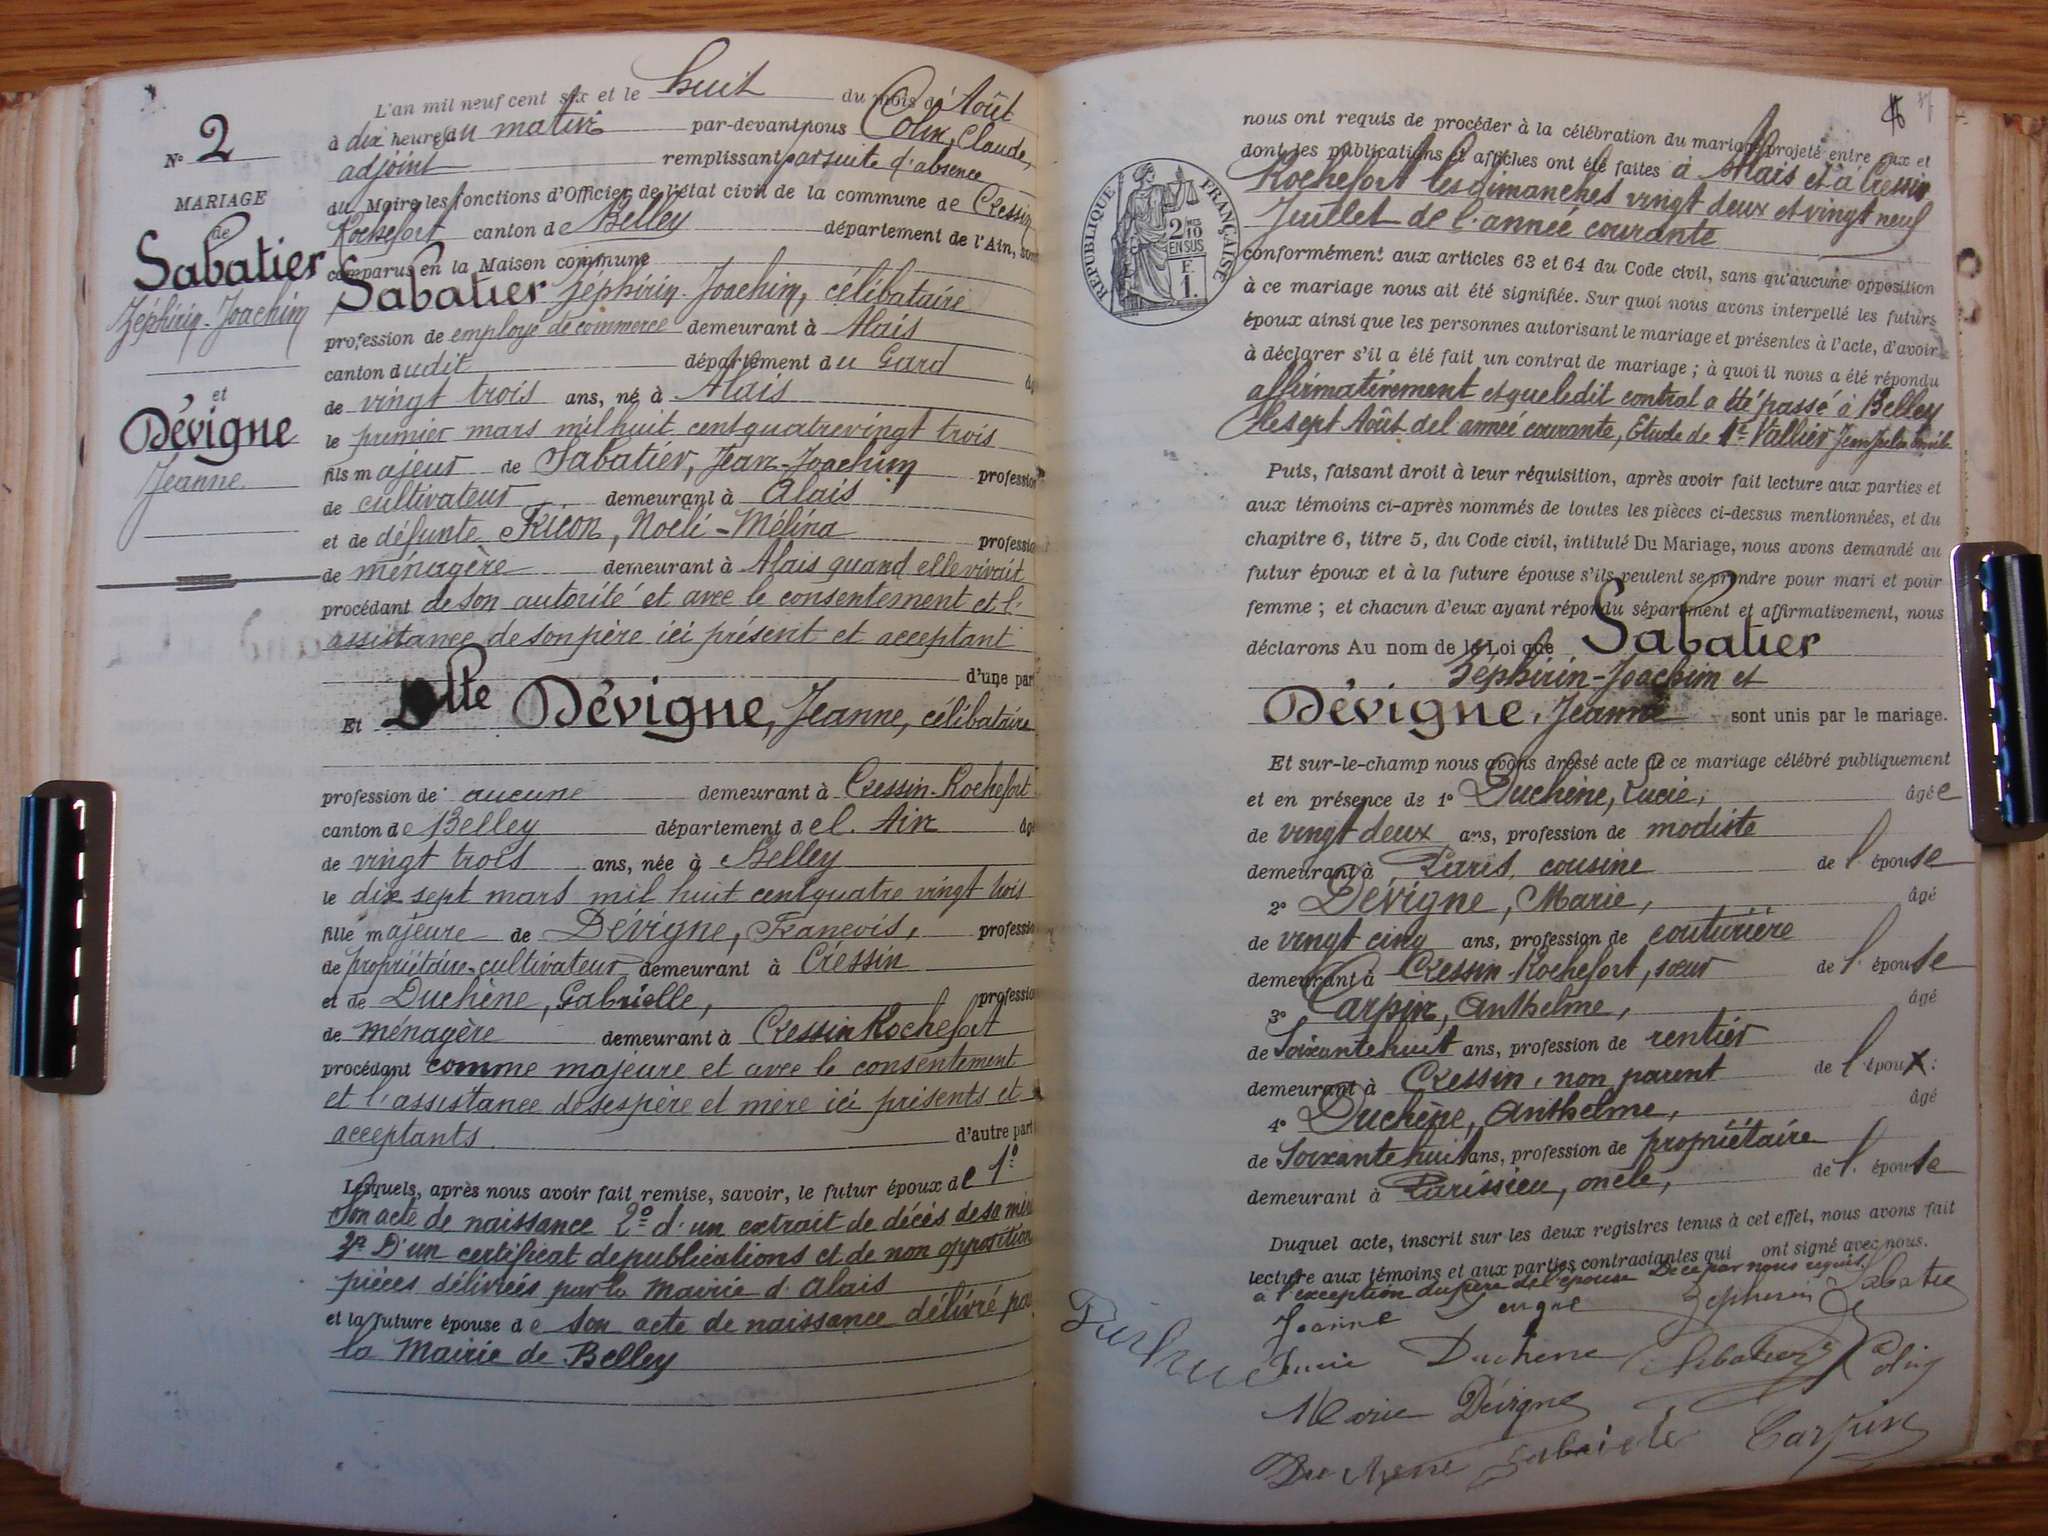 N° 2
MARIAGE
de
Sabatier
Zéphirin-Joachim
et
Dévigne
Jeanne
L'an mil neuf cent six et le huit du mois de Août
à dix heures du matin par-devant nous Colin, Claude,
adjoint remplissant par suite d'absence
du Maire les fonctions d'Officier de l'état civil de la commune de Cressin
Rochefort canton de Belley département de l'Ain, sont
comparus en la Maison commune
Sabatier Zéphirin-Joachim, célibataire
profession de employé de commerce demeurant à Alais
canton dudit département du Gard âgé
de vingt trois ans, né à Alais
le premier mars mil huit cent quatre vingt trois
fils majeur de Sabatier, Jean-Joachim profession
de cultivateur demeurant à Alais
et de défunte Noéli-Mélina profession
de ménagère demeurant à Alais quand elle vivait
procédant de son autorité et avec le consentement et l'
assistance de son père ici présent et acceptant
d'une part
Et Dlle Dévigne, Jeanne, célibataire
profession de aucune demeurant à Cressin-Rochefort
canton de Belley département de l'Ain âgé
de vingt trois ans, née à Belley
le dix sept mars mil huit cent quatre vingt trois
fille majeure de Dévigne, François, profession
de propriétaire-cultivateur demeurant à Cressin
et de Duchène, Gabrielle, profession
de ménagère demeurant à Cressin Rochefort
procédant comme majeure et avec le consentement
et l'assistance de ses père et mère ici présents et
acceptants d'autre part
Lesquels, après nous avoir fait remise, savoir, le futur époux de 1°
Son acte de naissance 2° d'un extrait de décès de sa mère
3° D'un certificat de publications et de non opposition
pièces délivrées par la Mairie d'Alais
et la future épouse de son acte de naissance délivré par
la Mairie de Belley
RÉPUBLIQUE FRANÇAISE
2 MES
10
EN SUS
F.
1.
nous ont requis de procéder à la célébration du mariage projeté entre eux et
dont les publications et affiches ont été faites à Alais et à Cressin
Rochefort les dimanches vingt deux et vingt neuf
Juillet de l'année courante
conformément aux articles 63 et 64 du Code civil, sans qu'aucune opposition
à ce mariage nous ait été signifiée. Sur quoi nous avons interpellé les futurs
époux ainsi que les personnes autorisant le mariage et présentes à l'acte, d'avoir
à déclarer s'il a été fait un contrat de mariage ; à quoi il nous a été répondu
affirmativement et que ledit contrat a été passé à Belley
le sept Août de l'année courante, Etude de Me Vallier
Puis, faisant droit à leur réquisition, après avoir fait lecture aux parties et
aux témoins ci-après nommés de toutes les pièces ci-dessus mentionnées, et du
chapitre 6, titre 5, du Code civil, intitulé Du Mariage, nous avons demandé au
futur époux et à la future épouse s'ils veulent se prendre pour mari et pour
femme ; et chacun d'eux ayant répondu séparément et affirmativement, nous
déclarons Au nom de la Loi que Sabatier
Zéphirin-Joachim et
Dévigne, Jeanne sont unis par le mariage.
Et sur-le-champ nous avons dressé acte de ce mariage célébré publiquement
et en présence de 1° Duchène, Lucie, âgée
de vingt deux ans, profession de modiste
demeurant à Paris, cousine de l'épouse
2° Dévigne, Marie, âgé
de vingt cinq ans, profession de couturière
demeurant à Cressin-Rochefort, sœur de l'épouse
3° Carpin, Anthelme, âgé
de Soixante huit ans, profession de rentier
demeurant à Cressin, non parent de l'époux
4° Duchène, Anthelme, âgé
de Soixante huit ans, profession de propriétaire
demeurant à Parissieu, oncle, de l'épouse
Duquel acte, inscrit sur les deux registres tenus à cet effet, nous avons fait
lecture aux témoins et aux parties contractantes qui ont signé avec nous.
à l'exception du père de l'épouse De ce par nous requis
Jeanne Zephirin Sabatier
Lucie Duchene Sabatier Colin
Marie Dévigne
Duchene Gabrielle Carpin